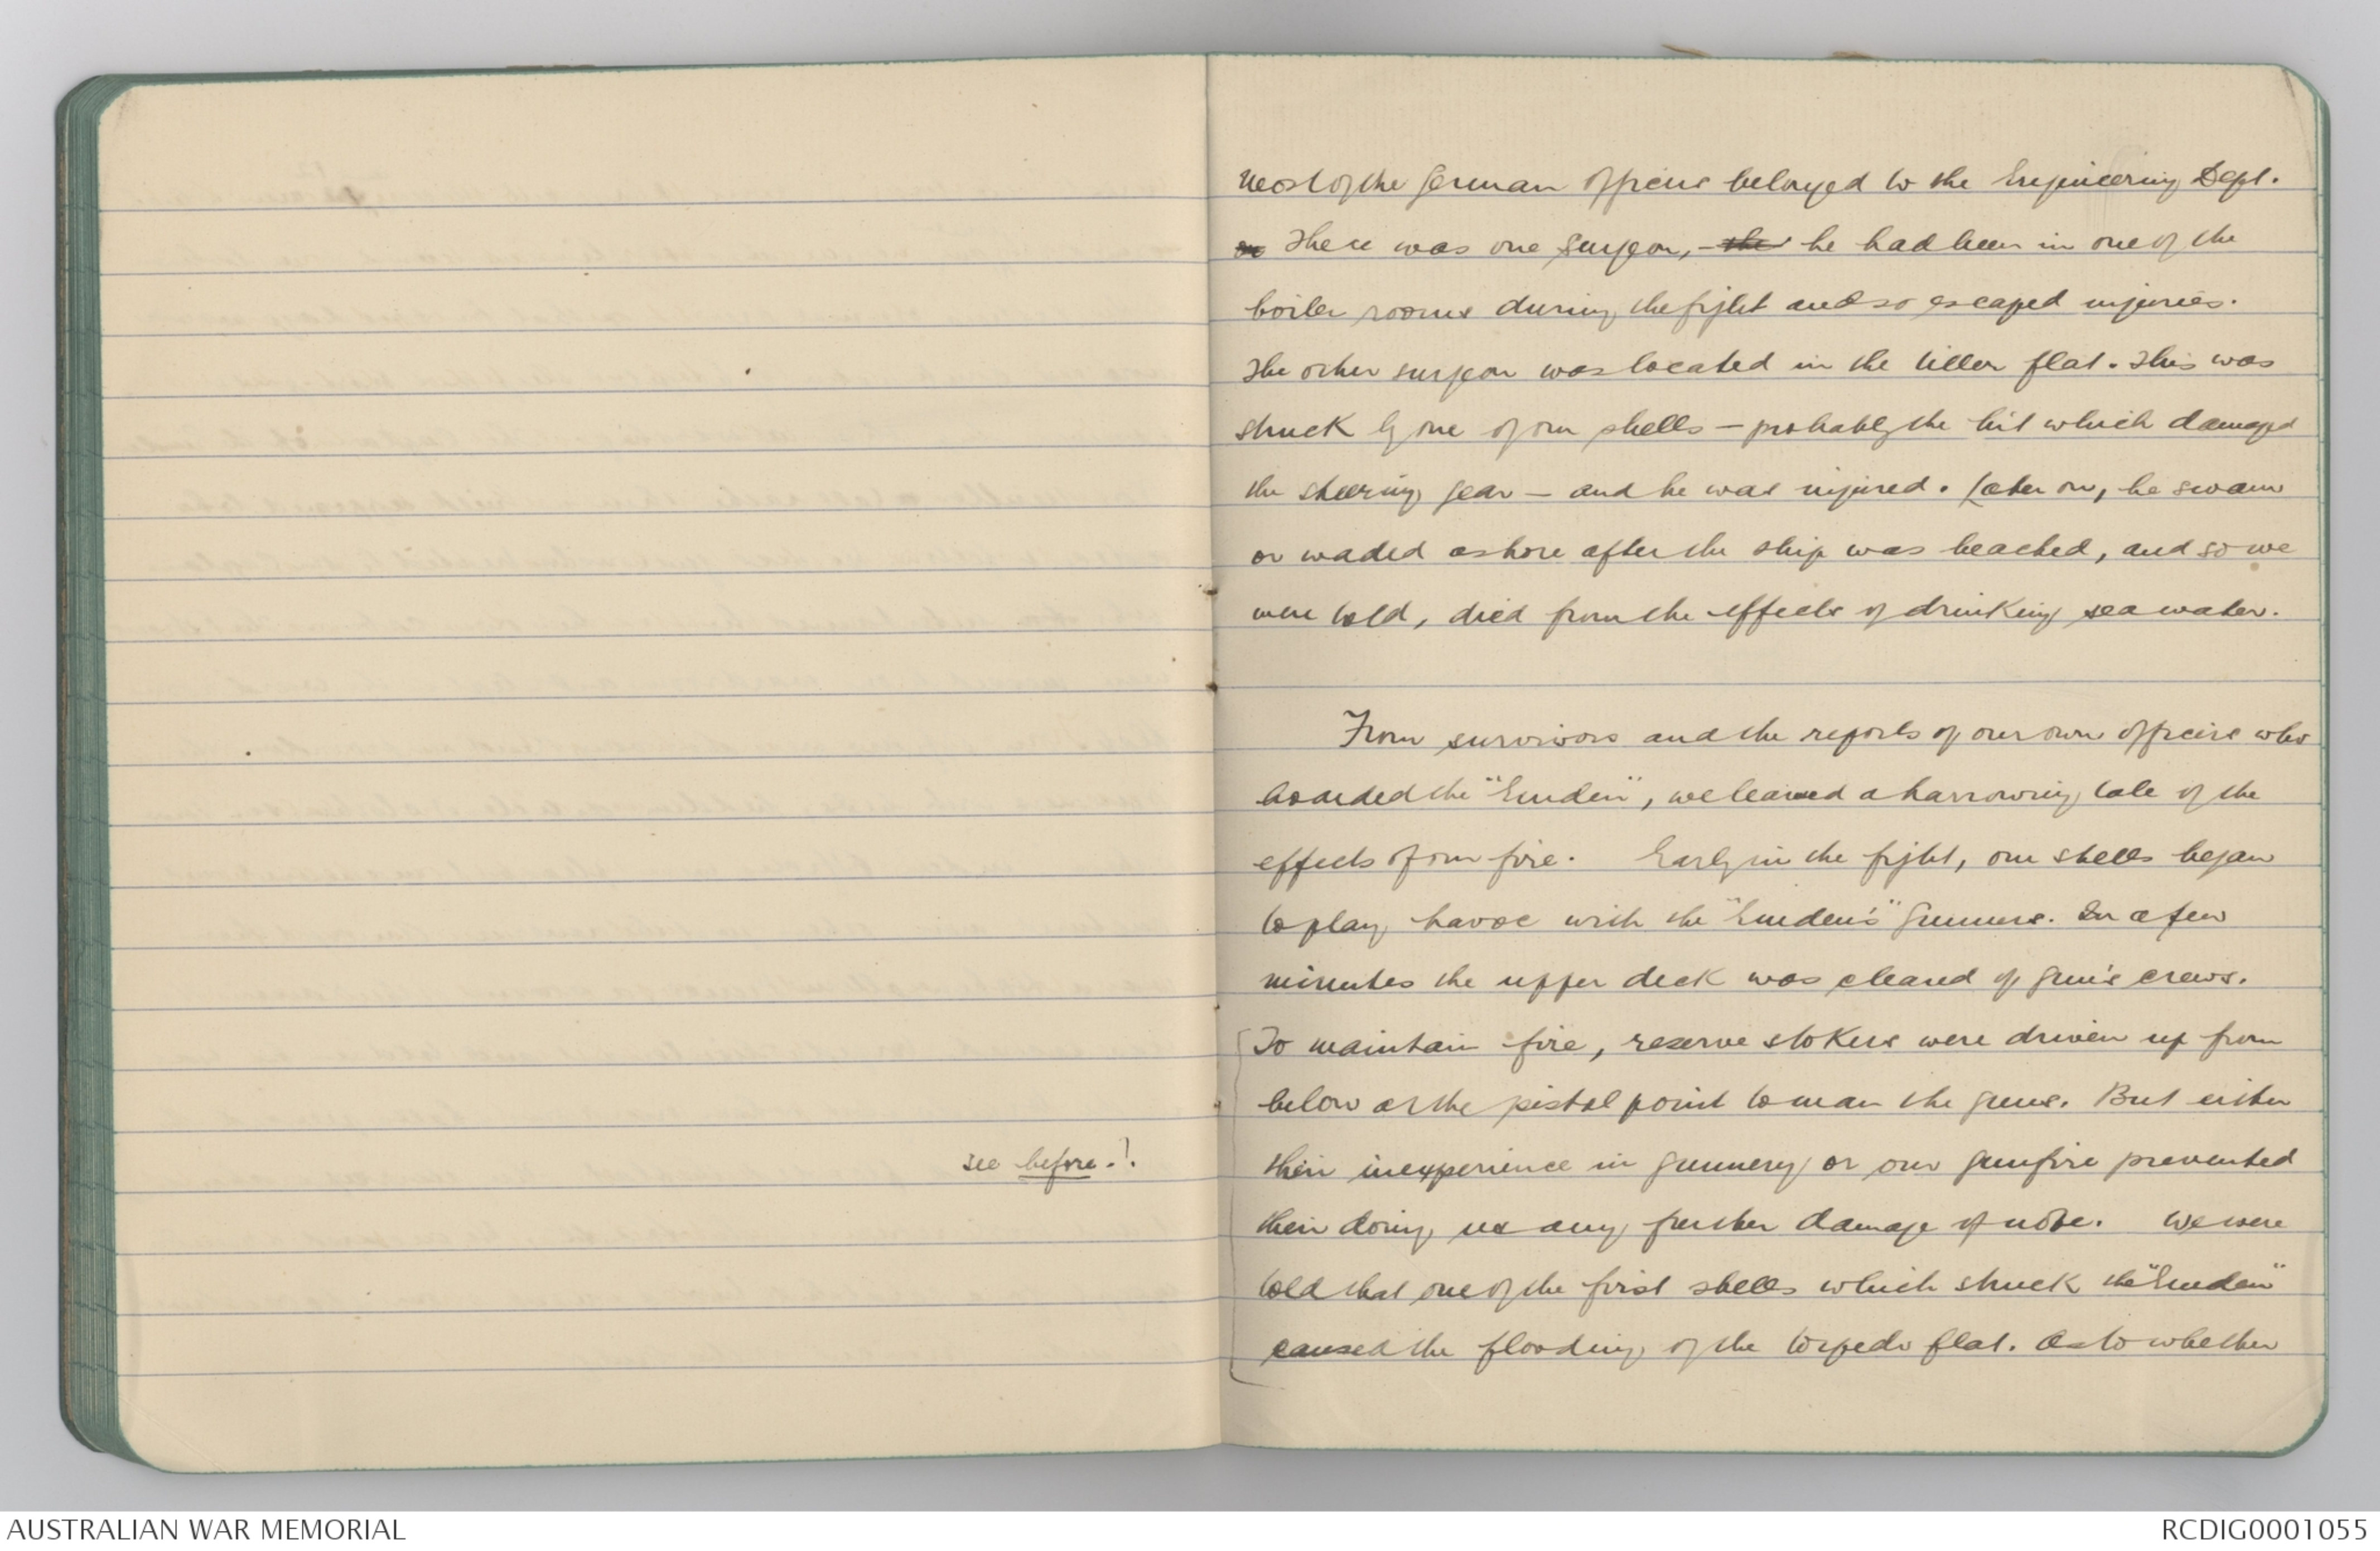 see before.!.
Most of the German officers belonged to the Engineering Dept.
There was one Surgeon, - he had been in one of the
boiler rooms during the fight and so escaped injuries.
The other surgeon was located in the tiller flat. This was
struck by one of our shells - probably the hit which damaged
the steering gear - and he was injured. Later on, he swam
or waded ashore after the ship was beached, and so we
were told, died from the effects of drinking sea water.
From survivors and the reports of our own officers who
boarded the "Emden", we learned a harrowing tale of the
effects of our fire. Early in the fight, our shells began
to play havoc with the "Emden's" Gunners. In a few
minutes the upper deck was cleared of gun's crews.
To maintain fire, reserve stokers were driven up from
below at the pistol point to man the guns. But either
their inexperience in gunnery or our gunfire prevented
their doing us any further damage of note. We were
told that one of the first shells which struck the "Emden"
caused the flooding of the torpedo flat. As to whether
AUSTRALIAN WAR MEMORIAL
RCDIG0001055